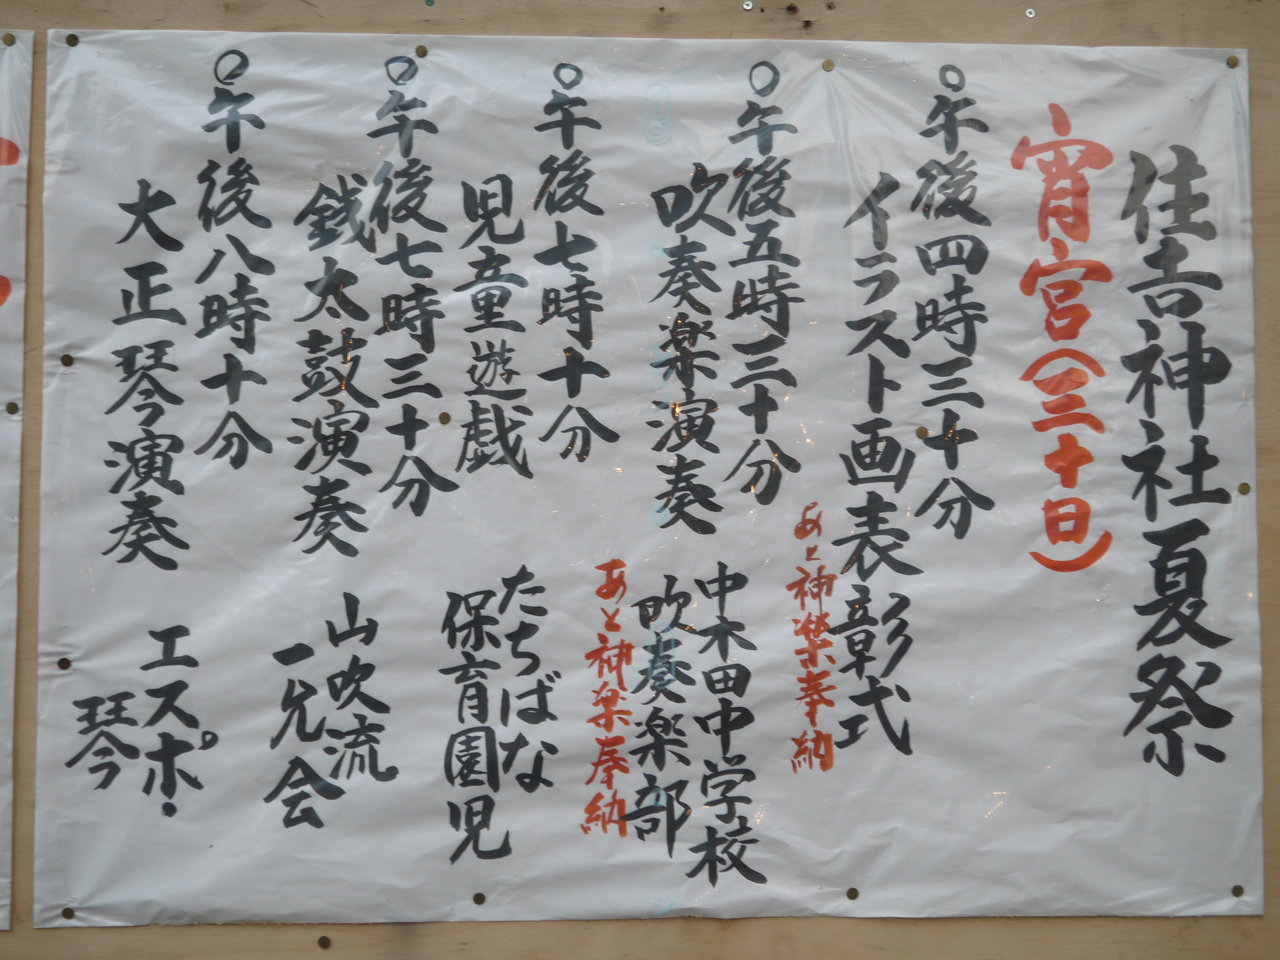 住吉神社夏祭
宵宮(三十日)
○午後四時三十分
イラスト画表彰式
あと神楽奉納
○午後五時三十分
吹奏楽演奏
中木田中学校
吹奏楽部
あと神楽奉納
○午後七時十分
児童遊戯
たちばな
保育園児
○午後七時三十分
銭太鼓演奏
山吹流
一允会
○午後八時十分
大正琴演奏
エスポ・
琴